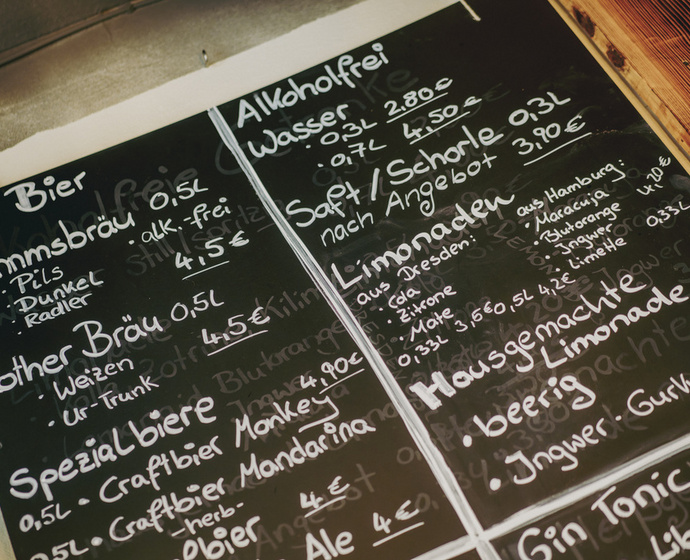 Bier
mmsbräu 0,5L
· Pils · alk.-frei
· Dunkel
· Radler 4,5€
other Bräu 0,5L
· Weizen 4,5€
· Ur-Trunk
Spezialbiere 4,90€
0,5L · Craftbier Monkey
0,5L · Craftbier Mandarina
-herb-
obier 4€
Ale 4€
Alkoholfrei
Wasser
· 0,3L 2,80€
· 0,7L 4,50€
Saft/Schorle 0,3L
nach Angebot 3,90€
Limonaden
aus Dresden:
· Cola
· Zitrone
· Mate
0,33L 3,5€ 0,5L 4,2€
aus Hamburg:
· Maracuja
· Blutorange
· Ingwer
· Limette
4,20€
0,33L
Hausgemachte
Limonade
· beerig
· Ingwer-Gurk
Gin Tonic